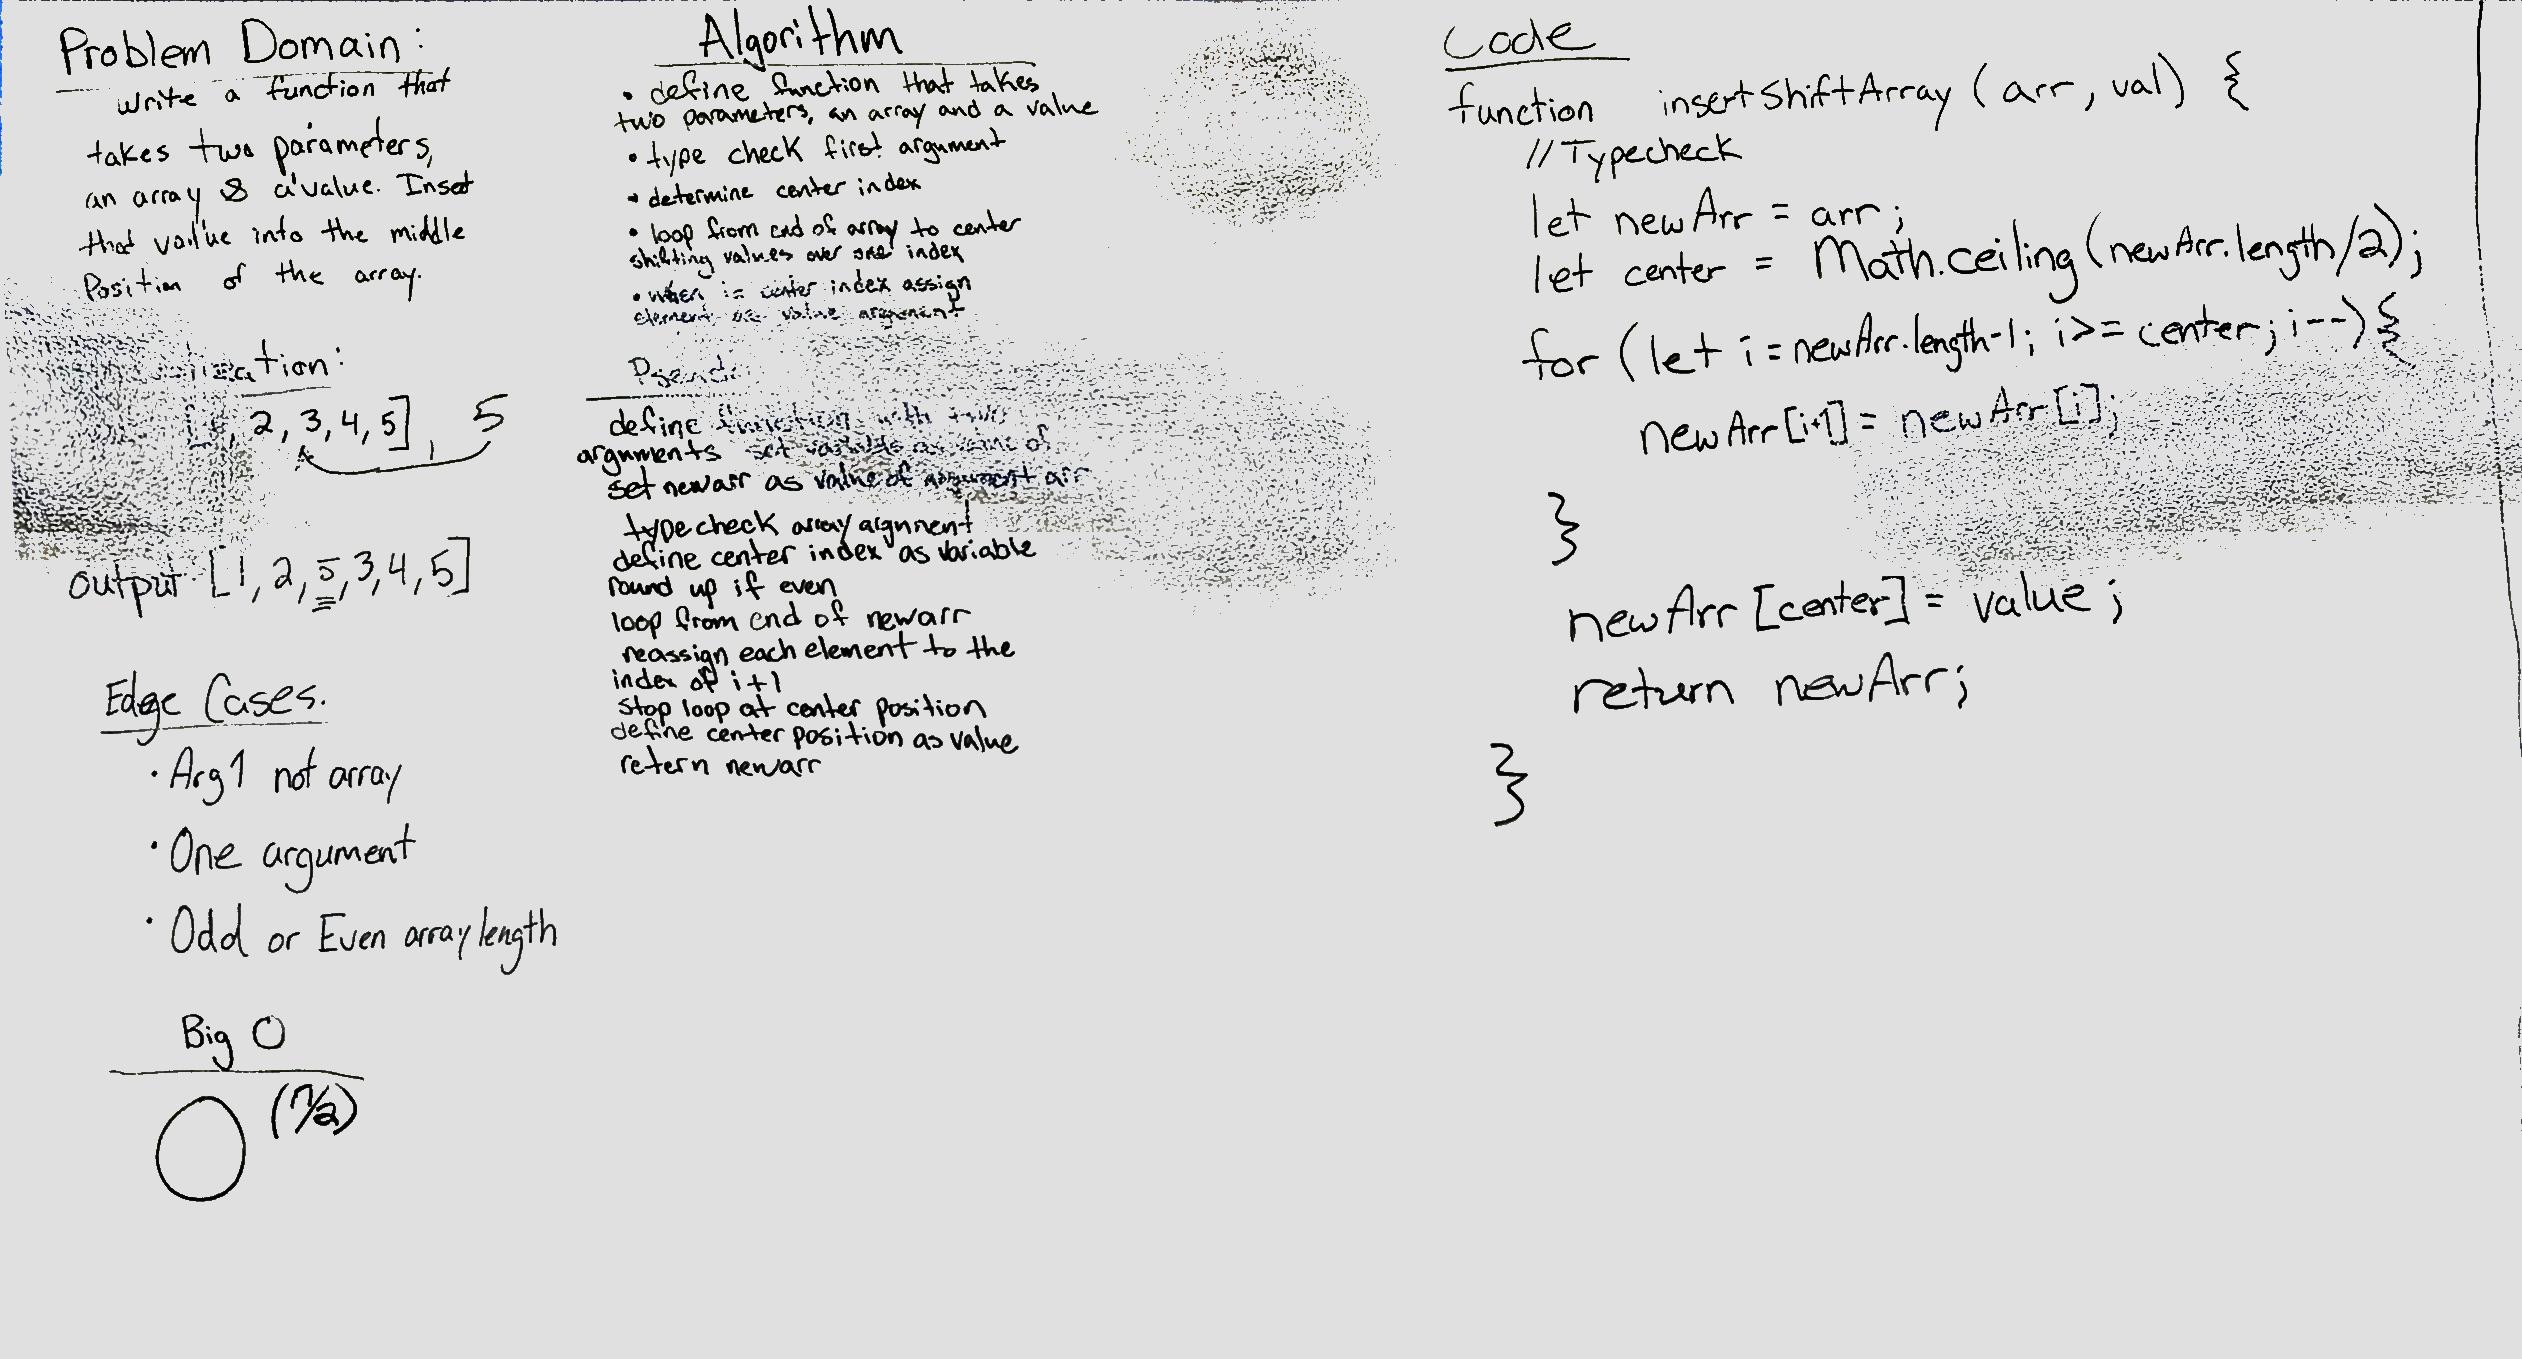 Problem Domain:
write a function that
takes two parameters,
an array & a value. Inset
that value into the middle
Position of the array.
ation:
2, 3, 4, 5] , 5
output [1, 2, 5, 3, 4, 5]
Edge Cases.
· Arg 1 not array
· One argument
· Odd or Even array length
Big O
O (n/2)
Algorithm
• define function that takes
two parameters, an array and a value
• type check first argument
• determine center index
• loop from end of array to center
shifting values over one index
• when i = center index assign
element as value argument
Pseudo
define function with two
arguments set variable as value of
set newarr as value of argument arr
type check array argument
define center index as variable
round up if even
loop from end of newarr
reassign each element to the
index of i+1
stop loop at center position
define center position as value
retern newarr
Code
function insertShiftArray (arr, val) {
// Typecheck
let newArr = arr;
let center = Math.ceiling(newArr.length/2);
for (let i = newArr.length-1; i >= center; i--) {
newArr[i+1] = newArr[i];
}
newArr [center] = value;
return newArr;
}